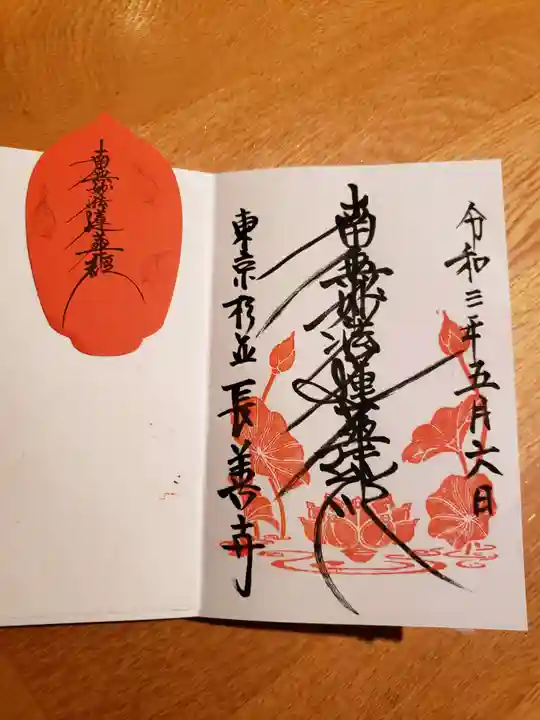 令和三年五月六日
南無妙法蓮華経
東京杉並 長善寺
南無妙法蓮華経